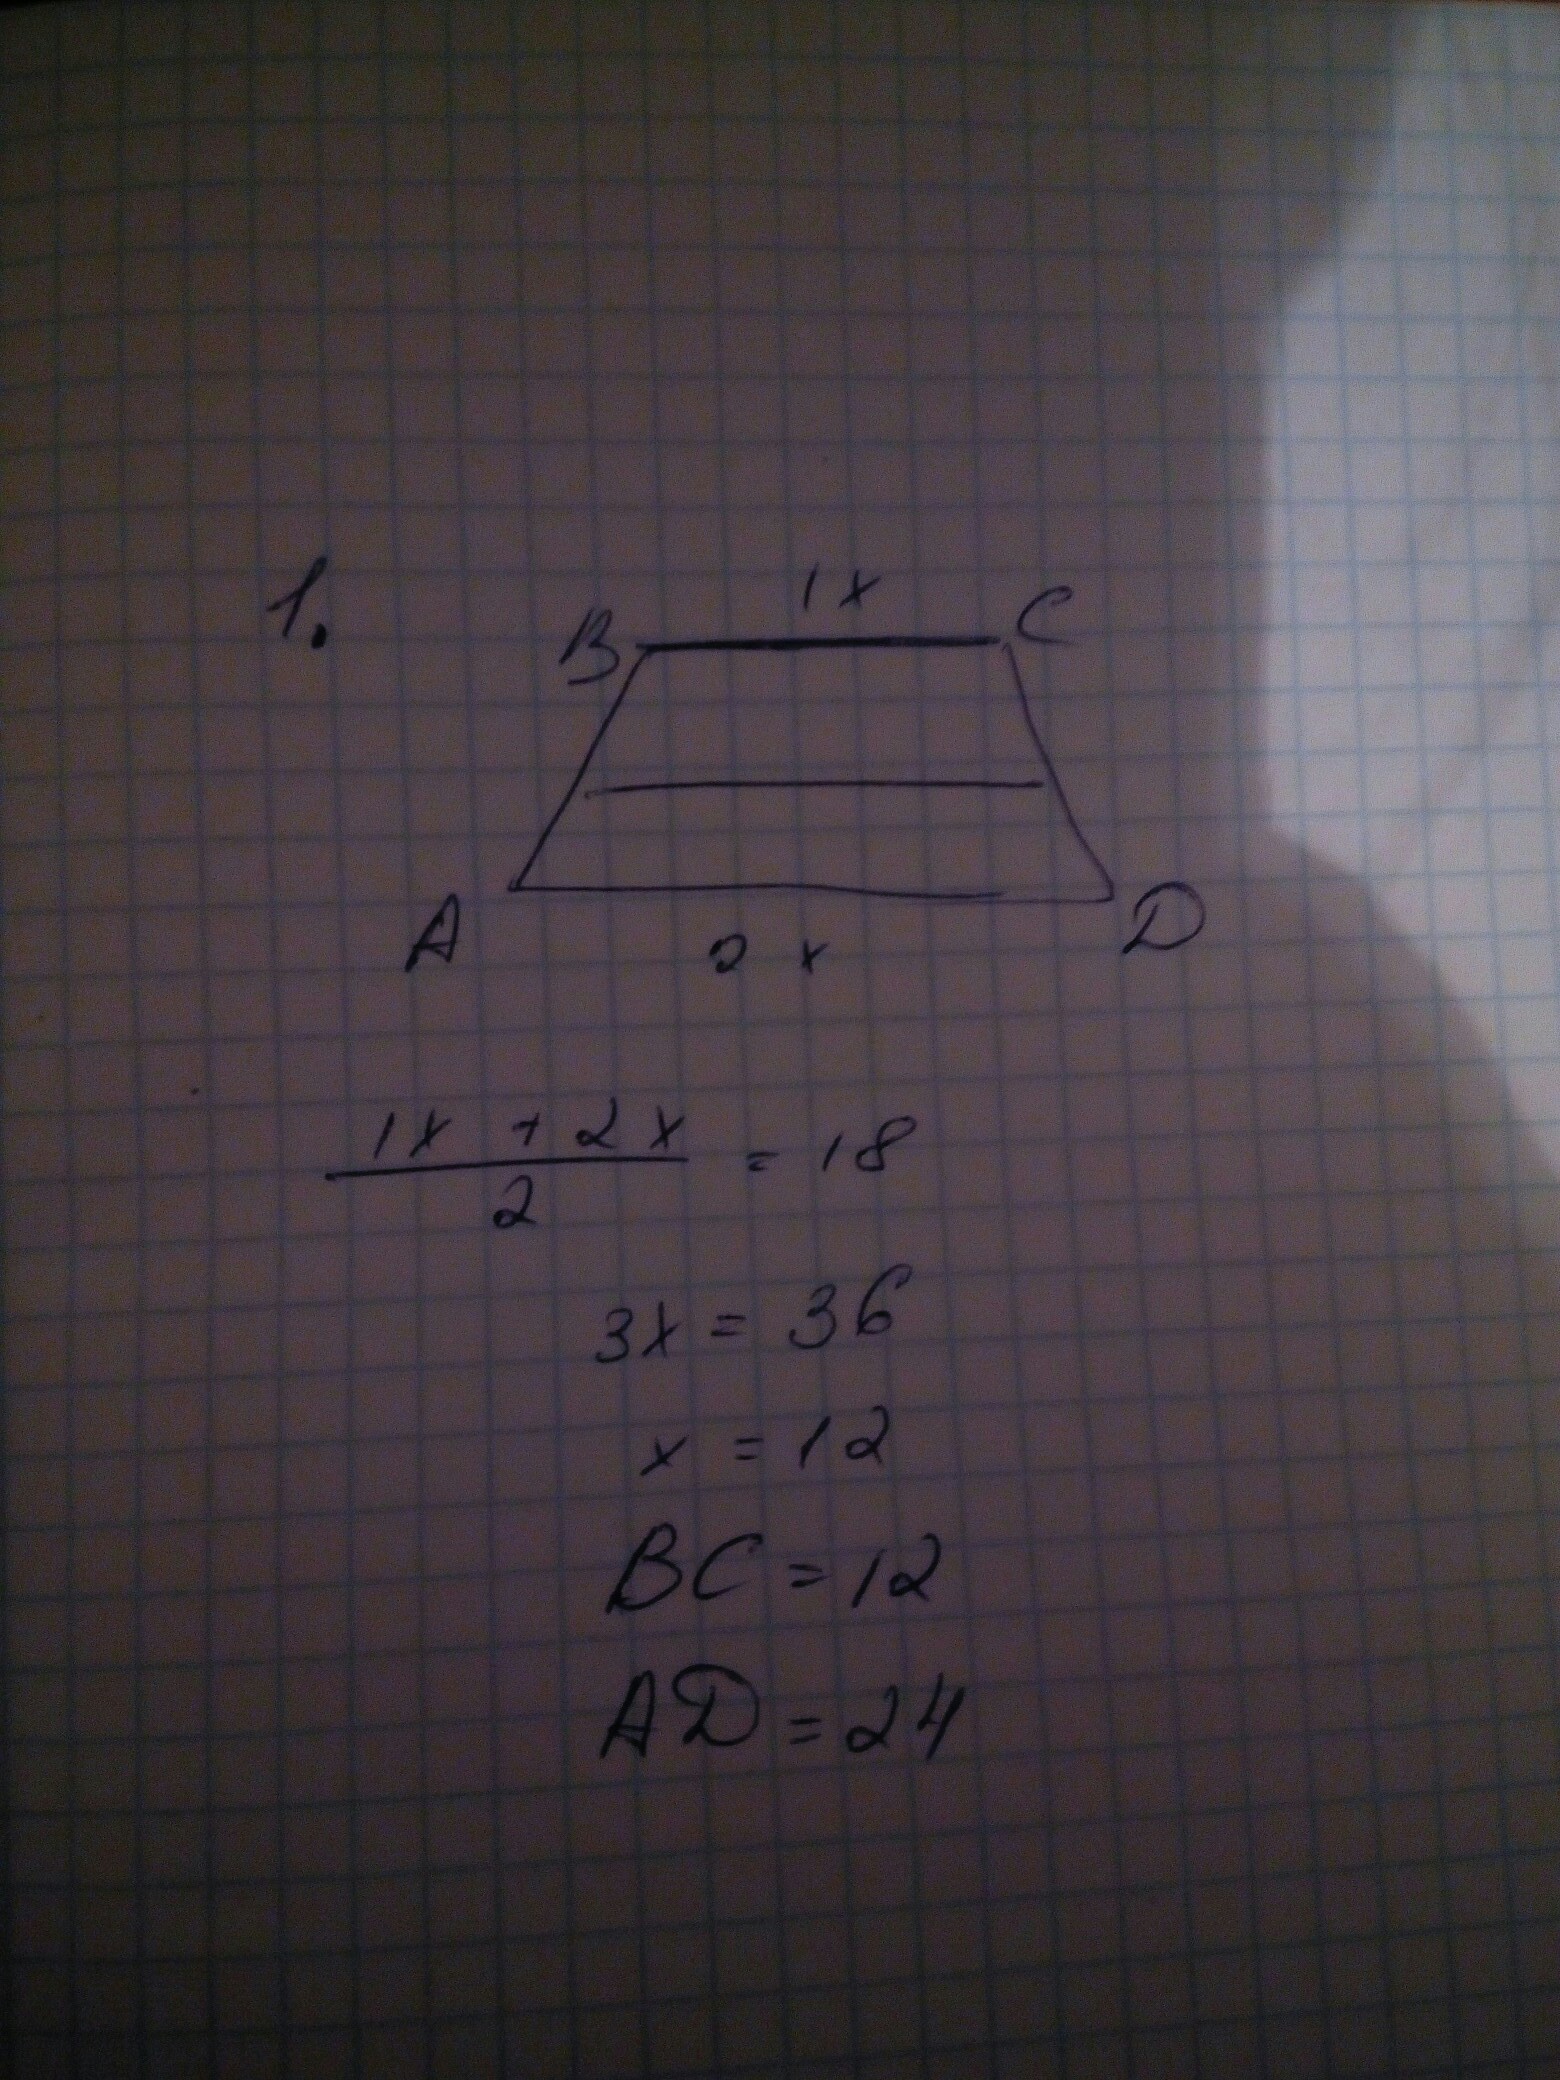 1.
1x
B C
A D
2 x
1x + 2x
2
= 18
3x = 36
x = 12
BC = 12
AD = 24